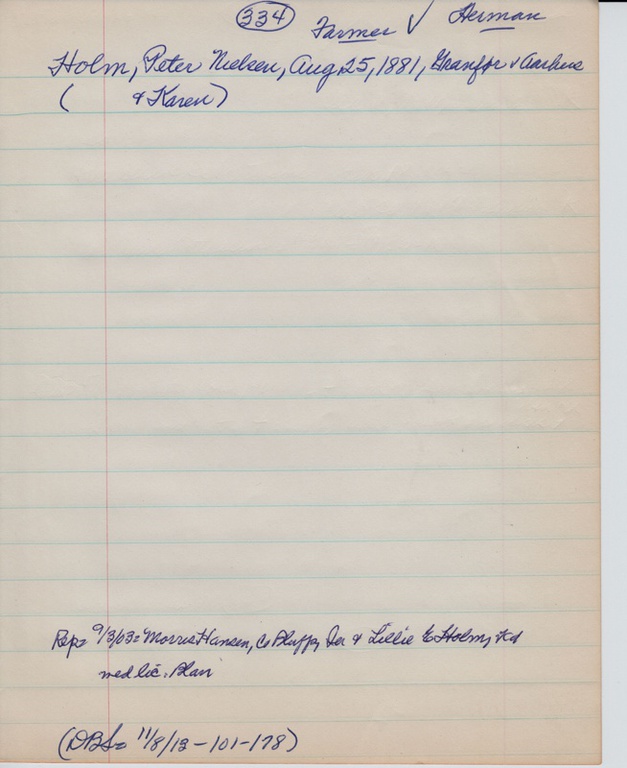 334 Farmer ✓ Herman
Holm, Peter Nielsen, Aug 25, 1881, Granfor v Aarhus
( & Karen)
Rep= 9/3/03= Morris Hansen, Co Bluffs, Ia & Lillie E Holm,
med lic. Blair
(DBS= 11/8/13-101-178)